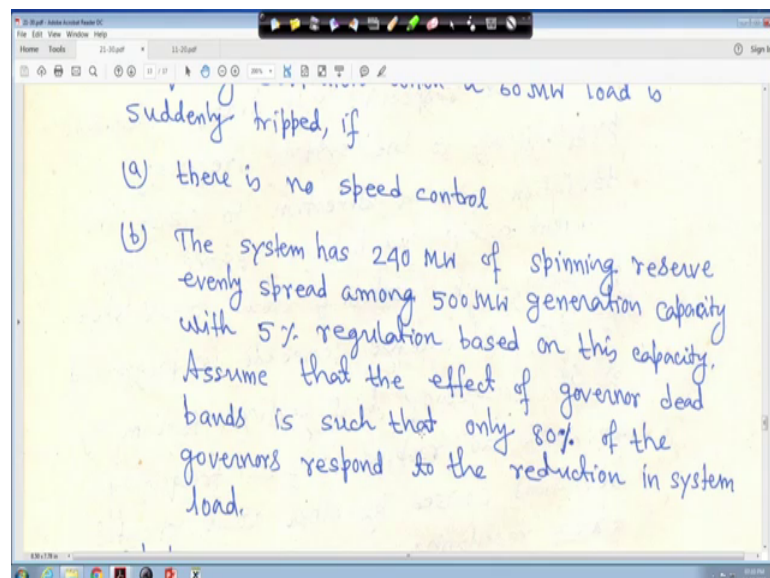 21-30.pdf - Adobe Acrobat Reader DC
File Edit View Window Help
Home Tools 21-30.pdf × 11-20.pdf Sign In
60 MW load is
suddenly tripped, if
(a) there is no speed control
(b) The system has 240 MW of spinning reserve
evenly spread among 500 MW generation capacity
with 5% regulation based on this capacity.
Assume that the effect of governor dead
bands is such that only 80% of the
governors respond to the reduction in system
load.